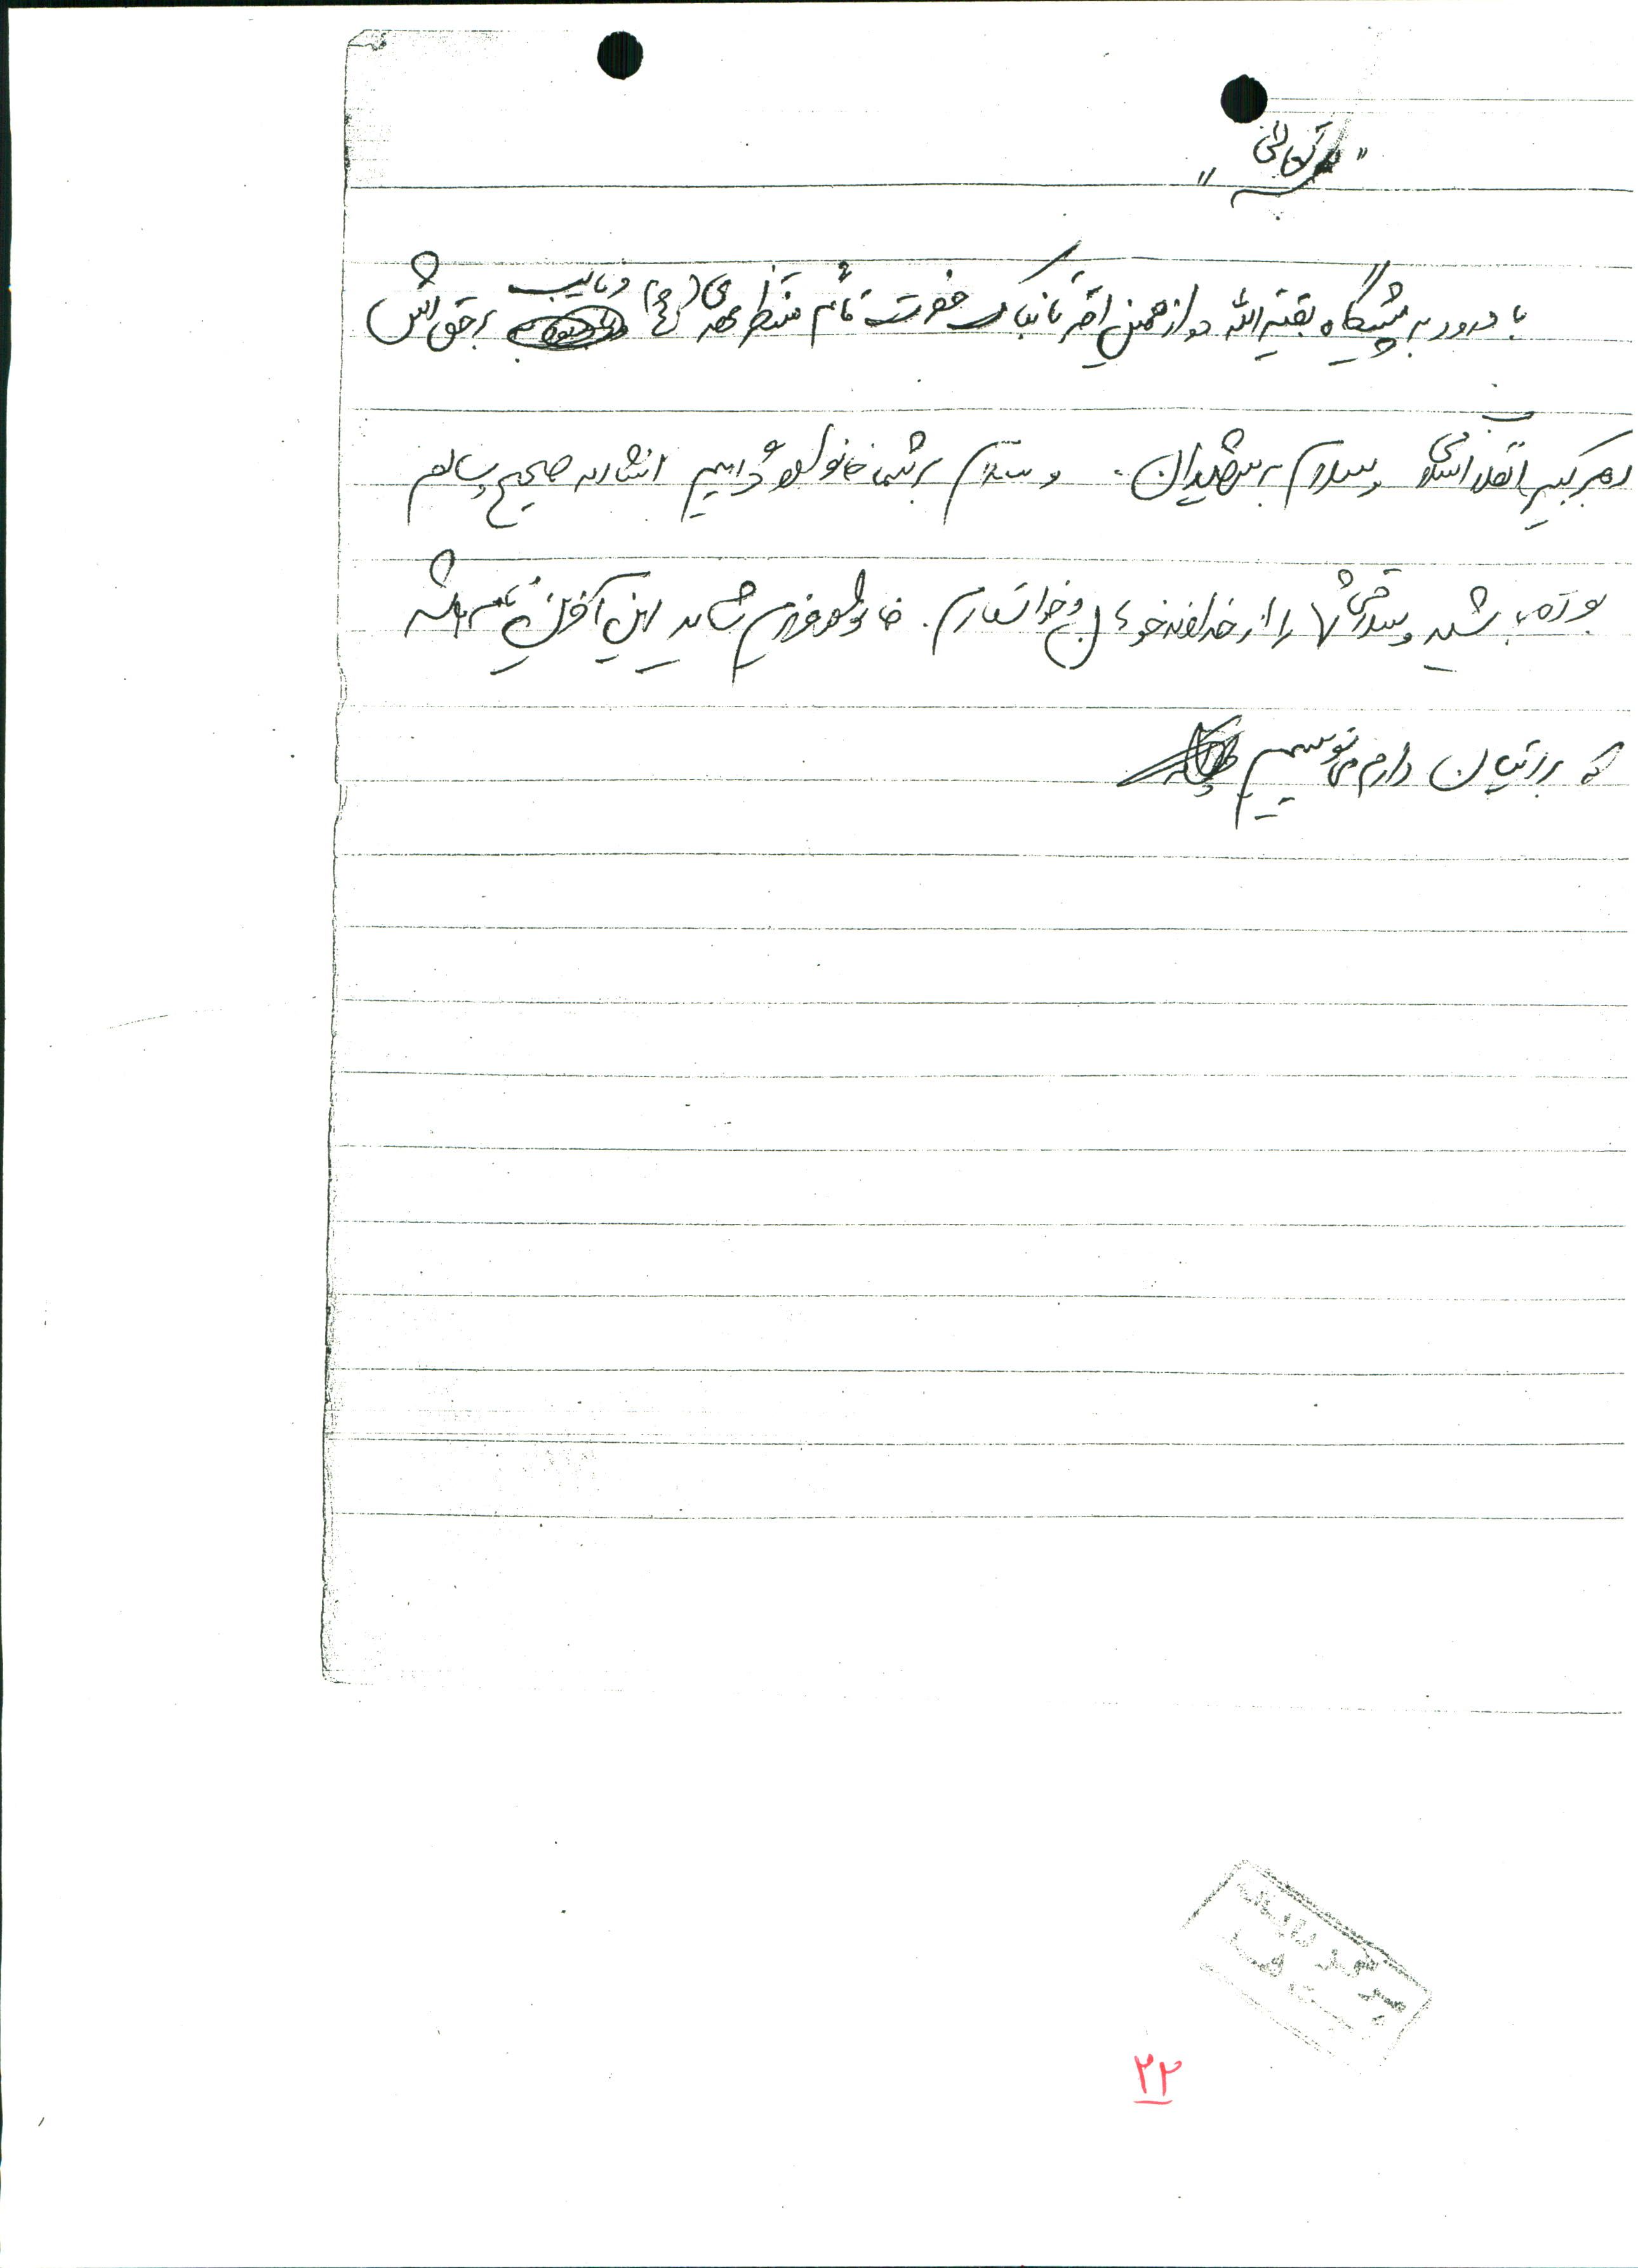 "بسمه تعالی"
با درود به پیشگاه بقیة الله دوازدهمین اختر تابناک حضرت قائم منتظر مهدی (عج) و نایب برحق اش
رهبر کبیر انقلاب اسلامی و سلام بر شهیدان. و سلام بر شما خانواده انشاالله صحیح و سالم
بوده باشید و سلامتی شما را از خداوند خواستارم. خانواده عزیزم شاید این آخرین نامه باشد
که برایتان دارم می نویسم
۲۲